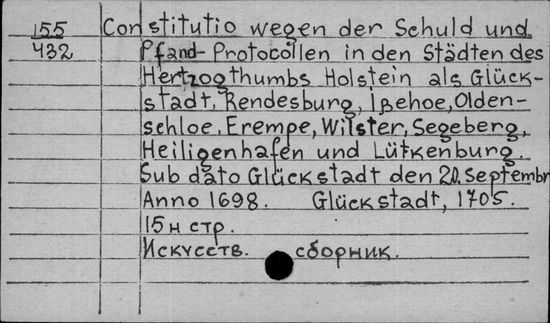 155 Constitutio wegen der Schuld und
432 Pfand-Protocollen in den Städten des
Hertzogthumbs Holstein als Glück-
stadt, Rendesburg, Ißehoe, Olden-
schloe, Crempe, Wilster, Segeberg,
Heiligenhafen und Lütkenburg.
Sub dato Glückstadt den 20. Septembr
Anno 1698. Glückstadt, 1705.
15 н стр.
Искусств. сборник.